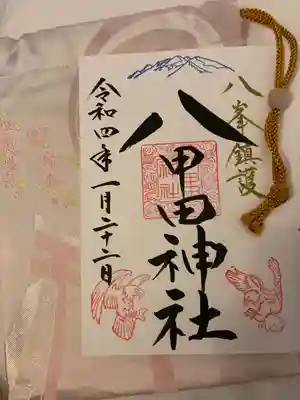 八峯鎮護
八甲田神社
令和四年一月二十二日